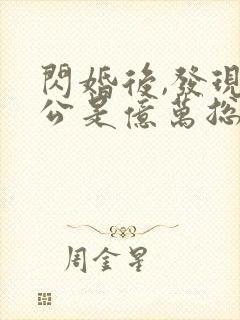 閃婚後,發現
公是億萬總
周金星